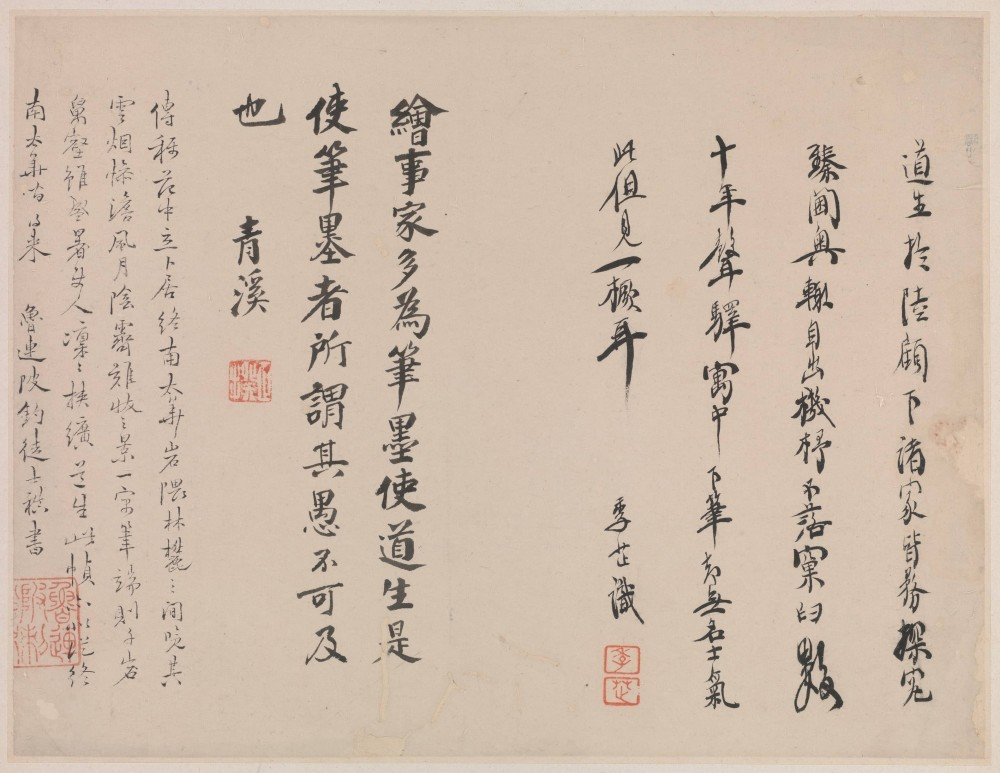 道生於陸顧下諸家皆務探究
臻閫奧輒自出機杼不落窠臼數
十年聲驛寓中下筆都無名士氣
此但見一橛耳
季芷識
季芷
繪事家多為筆墨使道生是
使筆墨者所謂其愚不可及
也 青溪
傳稱范中立卜居終南太華岩隈林麓之間覽其
雲烟慘澹風月陰霽難狀之景一寄筆端則千岩
萬壑雖盛暑使人凜凜挾纊道生此幀
南太華
魯連陂釣徒士 書